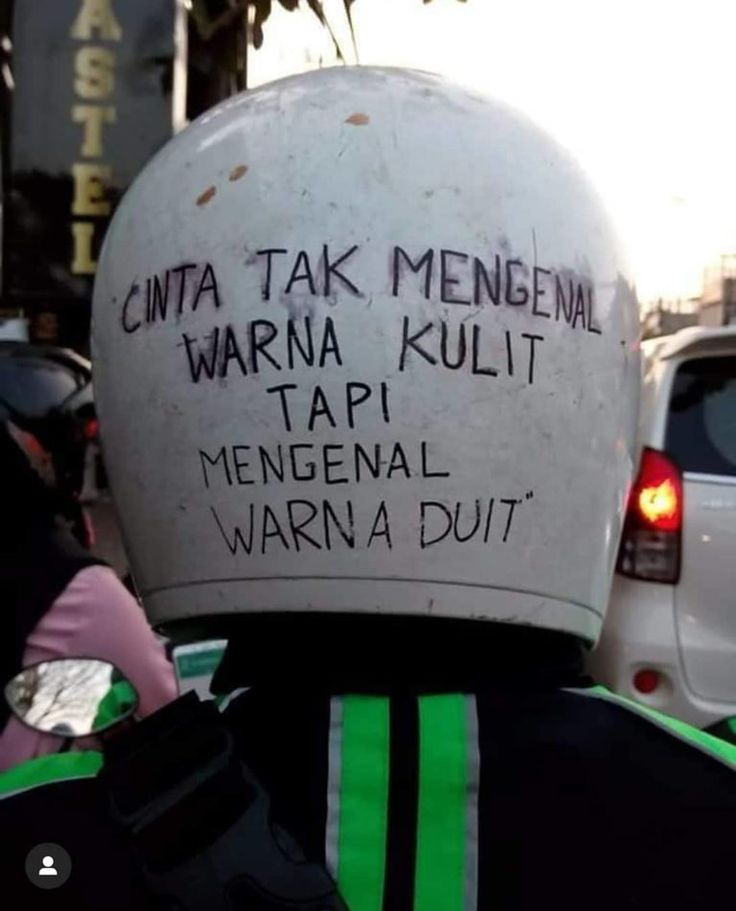 ASTEL
CINTA TAK MENGENAL
WARNA KULIT
TAPI
MENGENAL
WARNA DUIT"